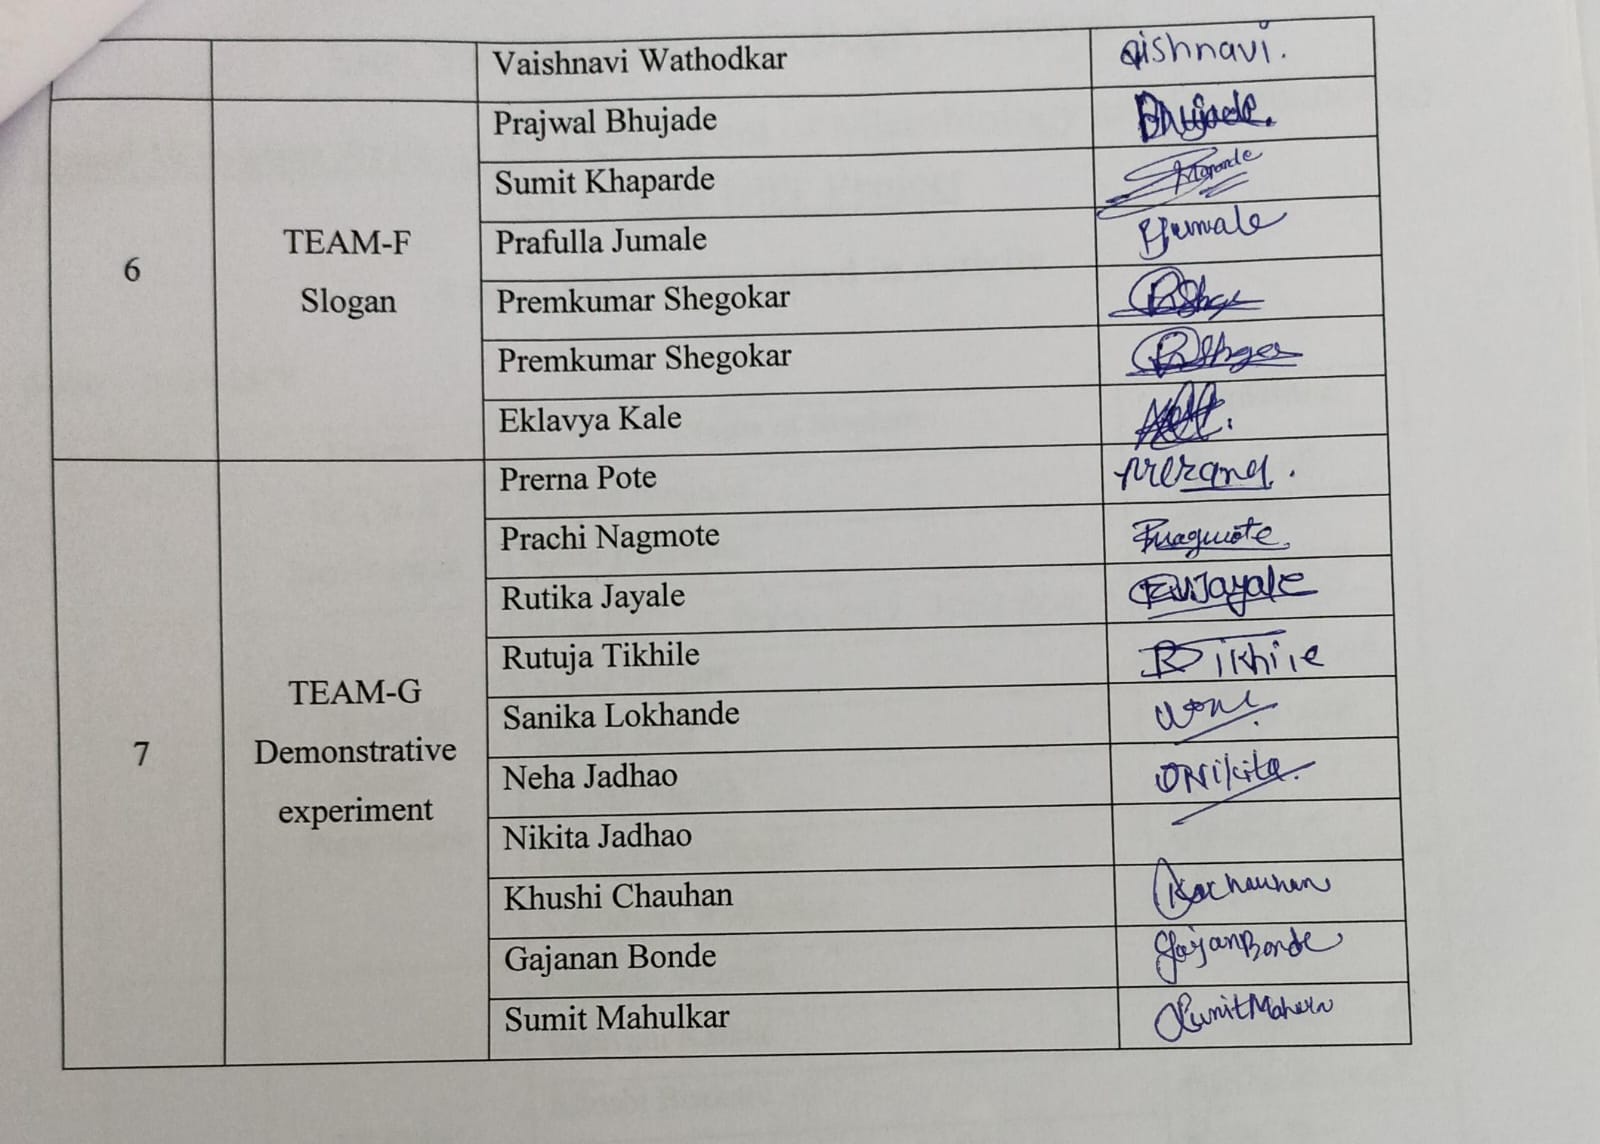 Vaishnavi Wathodkar aishnavi.
6 TEAM-F Slogan
Prajwal Bhujade Bhujade.
Sumit Khaparde
Prafulla Jumale PJumale
Premkumar Shegokar
Premkumar Shegokar
Eklavya Kale
7 TEAM-G Demonstrative experiment
Prerna Pote
Prachi Nagmote Pnagmote.
Rutika Jayale
Rutuja Tikhile
Sanika Lokhande
Neha Jadhao Nikita.
Nikita Jadhao
Khushi Chauhan
Gajanan Bonde GajananBonde
Sumit Mahulkar